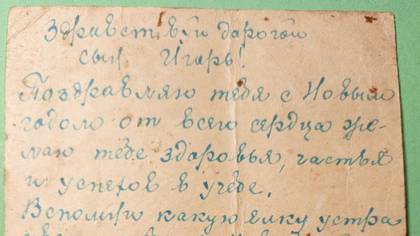 Здравствуй дарогой
сын Игорь!
Поздравляю тебя с Новым
годом от всего сердца же-
лаю тебе здоровья, частья
и успехов в учебе.
Вспомни какую ёлку устра